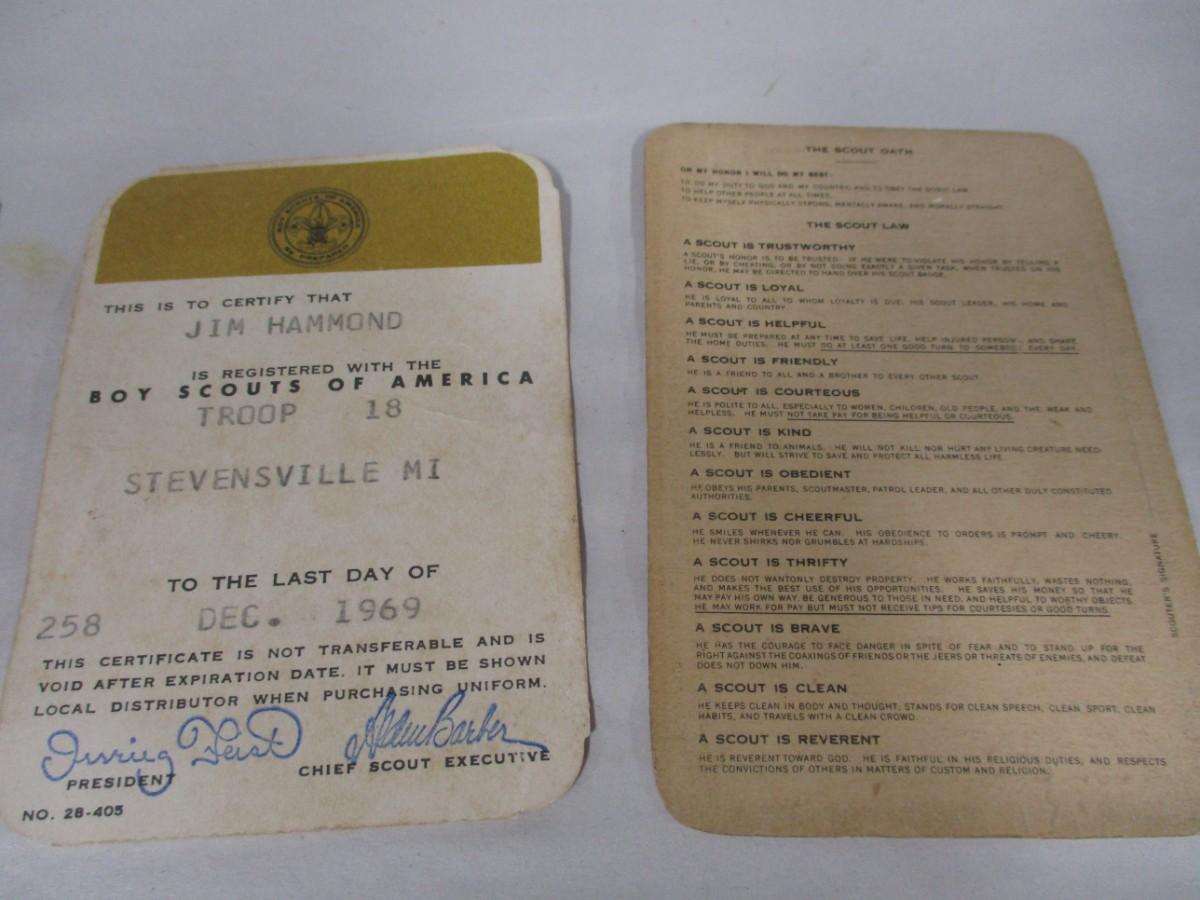 BOY SCOUTS OF AMERICA
BE PREPARED
THIS IS TO CERTIFY THAT
JIM HAMMOND
IS REGISTERED WITH THE
BOY SCOUTS OF AMERICA
TROOP 18
STEVENSVILLE MI
TO THE LAST DAY OF
258 DEC. 1969
THIS CERTIFICATE IS NOT TRANSFERABLE AND IS
VOID AFTER EXPIRATION DATE. IT MUST BE SHOWN
LOCAL DISTRIBUTOR WHEN PURCHASING UNIFORM.
Irving Feist Alden Barber
PRESIDENT CHIEF SCOUT EXECUTIVE
NO. 28-405
THE SCOUT OATH
ON MY HONOR I WILL DO MY BEST:
TO DO MY DUTY TO GOD AND MY COUNTRY, AND TO OBEY THE SCOUT LAW
TO HELP OTHER PEOPLE AT ALL TIMES,
TO KEEP MYSELF PHYSICALLY STRONG, MENTALLY AWAKE, AND MORALLY STRAIGHT.
THE SCOUT LAW
A SCOUT IS TRUSTWORTHY
A SCOUT'S HONOR IS TO BE TRUSTED. IF HE WERE TO VIOLATE HIS HONOR BY TELLING A
LIE, OR BY CHEATING, OR BY NOT DOING EXACTLY A GIVEN TASK, WHEN TRUSTED ON HIS
HONOR, HE MAY BE DIRECTED TO HAND OVER HIS SCOUT BADGE.
A SCOUT IS LOYAL
HE IS LOYAL TO ALL TO WHOM LOYALTY IS DUE: HIS SCOUT LEADER, HIS HOME AND
PARENTS AND COUNTRY.
A SCOUT IS HELPFUL
HE MUST BE PREPARED AT ANY TIME TO SAVE LIFE, HELP INJURED PERSON , AND SHARE
THE HOME DUTIES. HE MUST DO AT LEAST ONE GOOD TURN TO SOMEBOD EVERY DAY.
A SCOUT IS FRIENDLY
HE IS A FRIEND TO ALL AND A BROTHER TO EVERY OTHER SCOUT.
A SCOUT IS COURTEOUS
HE IS POLITE TO ALL, ESPECIALLY TO WOMEN, CHILDREN, OLD PEOPLE, AND THE WEAK AND
HELPLESS. HE MUST NOT TAKE PAY FOR BEING HELPFUL OR COURTEOUS.
A SCOUT IS KIND
HE IS A FRIEND TO ANIMALS. HE WILL NOT KILL NOR HURT ANY LIVING CREATURE NEED-
LESSLY. BUT WILL STRIVE TO SAVE AND PROTECT ALL HARMLESS LIFE.
A SCOUT IS OBEDIENT
HE OBEYS HIS PARENTS, SCOUTMASTER, PATROL LEADER, AND ALL OTHER DULY CONSTITUTED
AUTHORITIES.
A SCOUT IS CHEERFUL
HE SMILES WHENEVER HE CAN. HIS OBEDIENCE TO ORDERS IS PROMPT AND CHEERY.
HE NEVER SHIRKS NOR GRUMBLES AT HARDSHIPS.
A SCOUT IS THRIFTY
HE DOES NOT WANTONLY DESTROY PROPERTY. HE WORKS FAITHFULLY, WASTES NOTHING,
AND MAKES THE BEST USE OF HIS OPPORTUNITIES. HE SAVES HIS MONEY SO THAT HE
MAY PAY HIS OWN WAY, BE GENEROUS TO THOSE IN NEED, AND HELPFUL TO WORTHY OBJECTS.
HE MAY WORK FOR PAY BUT MUST NOT RECEIVE TIPS FOR COURTESIES OR GOOD TURNS.
A SCOUT IS BRAVE
HE HAS THE COURAGE TO FACE DANGER IN SPITE OF FEAR AND TO STAND UP FOR THE
RIGHT AGAINST THE COAXINGS OF FRIENDS OR THE JEERS OR THREATS OF ENEMIES, AND DEFEAT
DOES NOT DOWN HIM.
A SCOUT IS CLEAN
HE KEEPS CLEAN IN BODY AND THOUGHT, STANDS FOR CLEAN SPEECH, CLEAN SPORT, CLEAN
HABITS, AND TRAVELS WITH A CLEAN CROWD.
A SCOUT IS REVERENT
HE IS REVERENT TOWARD GOD. HE IS FAITHFUL IN HIS RELIGIOUS DUTIES, AND RESPECTS
THE CONVICTIONS OF OTHERS IN MATTERS OF CUSTOM AND RELIGION.
SCOUTER'S SIGNATURE